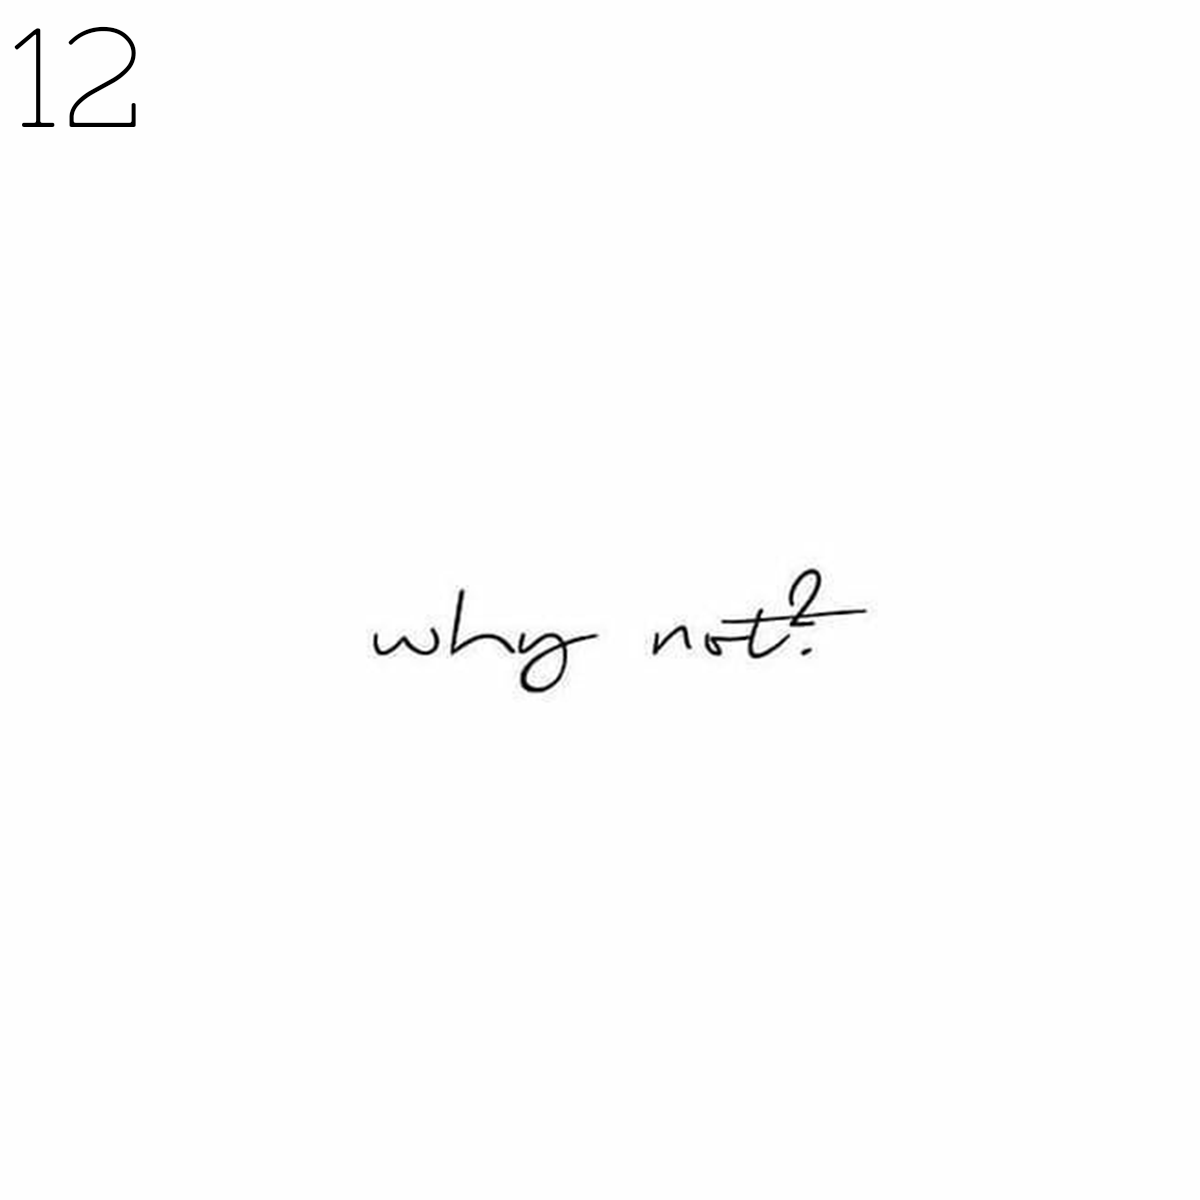 12
why not?